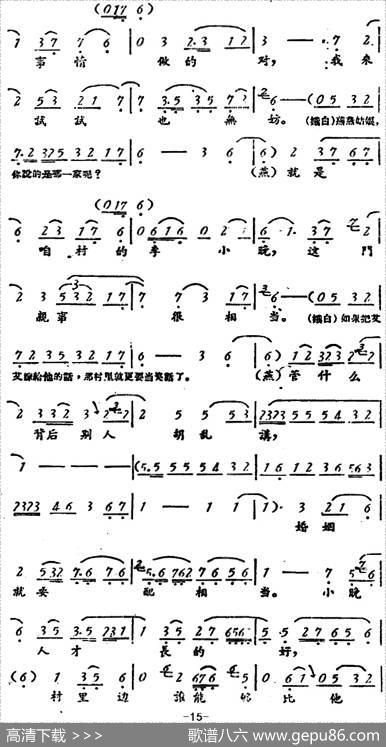 (017 6)
1 37 7 6 | 0 3 2·3 12 | 3 — · 7 2
事情 做的 对, 我来
2 53 21 7 | 7 3·5 35 73 | 6 — (05 32
試試 也無妨。 (媒白)燕燕姑娘,
7·2 325 32 17 | 6 — 3 6 | 6) 2 37 67
你說的是那一家呢? (燕)就是
(017 6)
6 23 17 6 | 0 616 02 | 6·1· 37 2
咱村的李 小晚, 这門
2 3 532 17 | 7 73 17 | 6 — (05 32
親事 很相当。 (媒白)如果把艾
72 35 32 17 | 6 — 3 6 | 6) 12 323 2
艾嫁給他的話,那村里就更要当笑話了。 (燕)管什么
2 332 3 2 | 2 5 5 53 | 2323 55 54 32
背后別人 胡乱 講,
1 — — — | (5·5 55 54 32 | 16 12 36 563
2323 46 3 67 | 1 — 1 1 | 1)· 3 21 6
婚姻
2 532 7·6 76 | 5·6 762 76 56 | 1 — 7 5
就要 配相 当。 小晚
6 35 3·5 231 | 1 35 27 656 | 5·5 27 65 6
人才 長的 好,
(6) 1 35 6 | 0 2 676 5 | 0 61 05 32
村里边 誰能 比他
-15-
高清下载 >>>
歌谱八六 www.gepu86.com